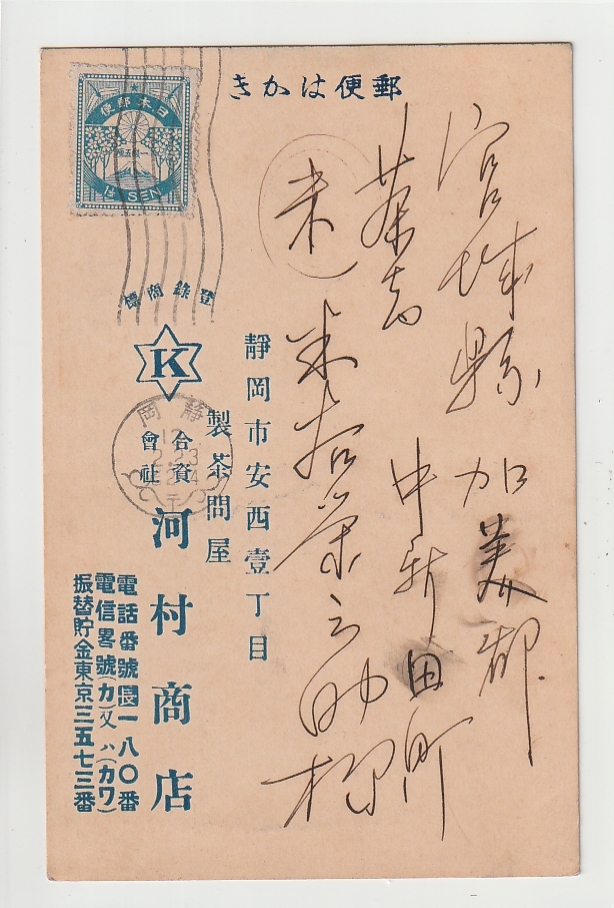 郵便はかき
日本郵便
1½ SEN
宮城縣 加美郡
中新田町
茶商
米
米谷栄之助様
登錄商標
K
靜岡市安西壹丁目
製茶問屋
合資會社 河村商店
靜岡
電話番號長一八〇番
電信畧號(カ)又ハ(カワ)
振替貯金東京三五七三番